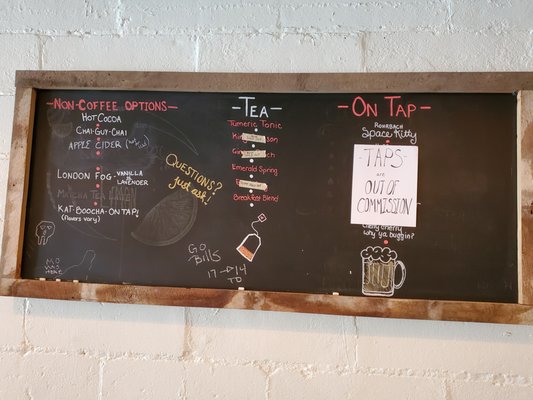 -NON-COFFEE OPTIONS-
HOT COCOA
CHAI-GUY-CHAI
APPLE CIDER (HOT
LONDON FOG - VANILLA
LAVENDER
MATCHA TEA LATTE
KAT-BOOCHA-ON TAP!
(flavors vary)
MO
WAS
HERE
QUESTIONS?
just ask!
-TEA-
Turmeric Tonic
Emerald Spring
Breakfast Blend
GO
BILLS
17 14
TD
-ON TAP-
ROHRBACH
Space Kitty
-TAPS-
are
OUT OF
COMMISSION
why ya buggin?